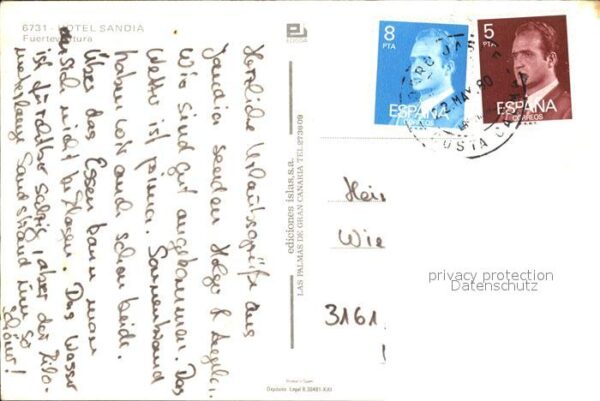 6731 - HOTEL SANDIA
Fuerteventura
Herzliche Urlaubsgrüße aus
Jandia senden Helga &
Wir sind gut angekommen. Das
Wetter ist prima. Sonnenbrand
haben wir auch schon beide.
Über das Essen kann man
sich nicht beklagen. Das Wasser
ist furchtbar salzig, aber der kilo-
meterlange Sandstrand um so
schöner!
EDISSA
ediciones islas, s.a.
LAS PALMAS DE GRAN CANARIA TEL. 273609
Printed in Spain
8
PTA
ESPAÑA
CORREOS
5
PTA
ESPAÑA
CORREOS
2 MAY 80
Hei
Wie
3161
privacy protection
Datenschutz